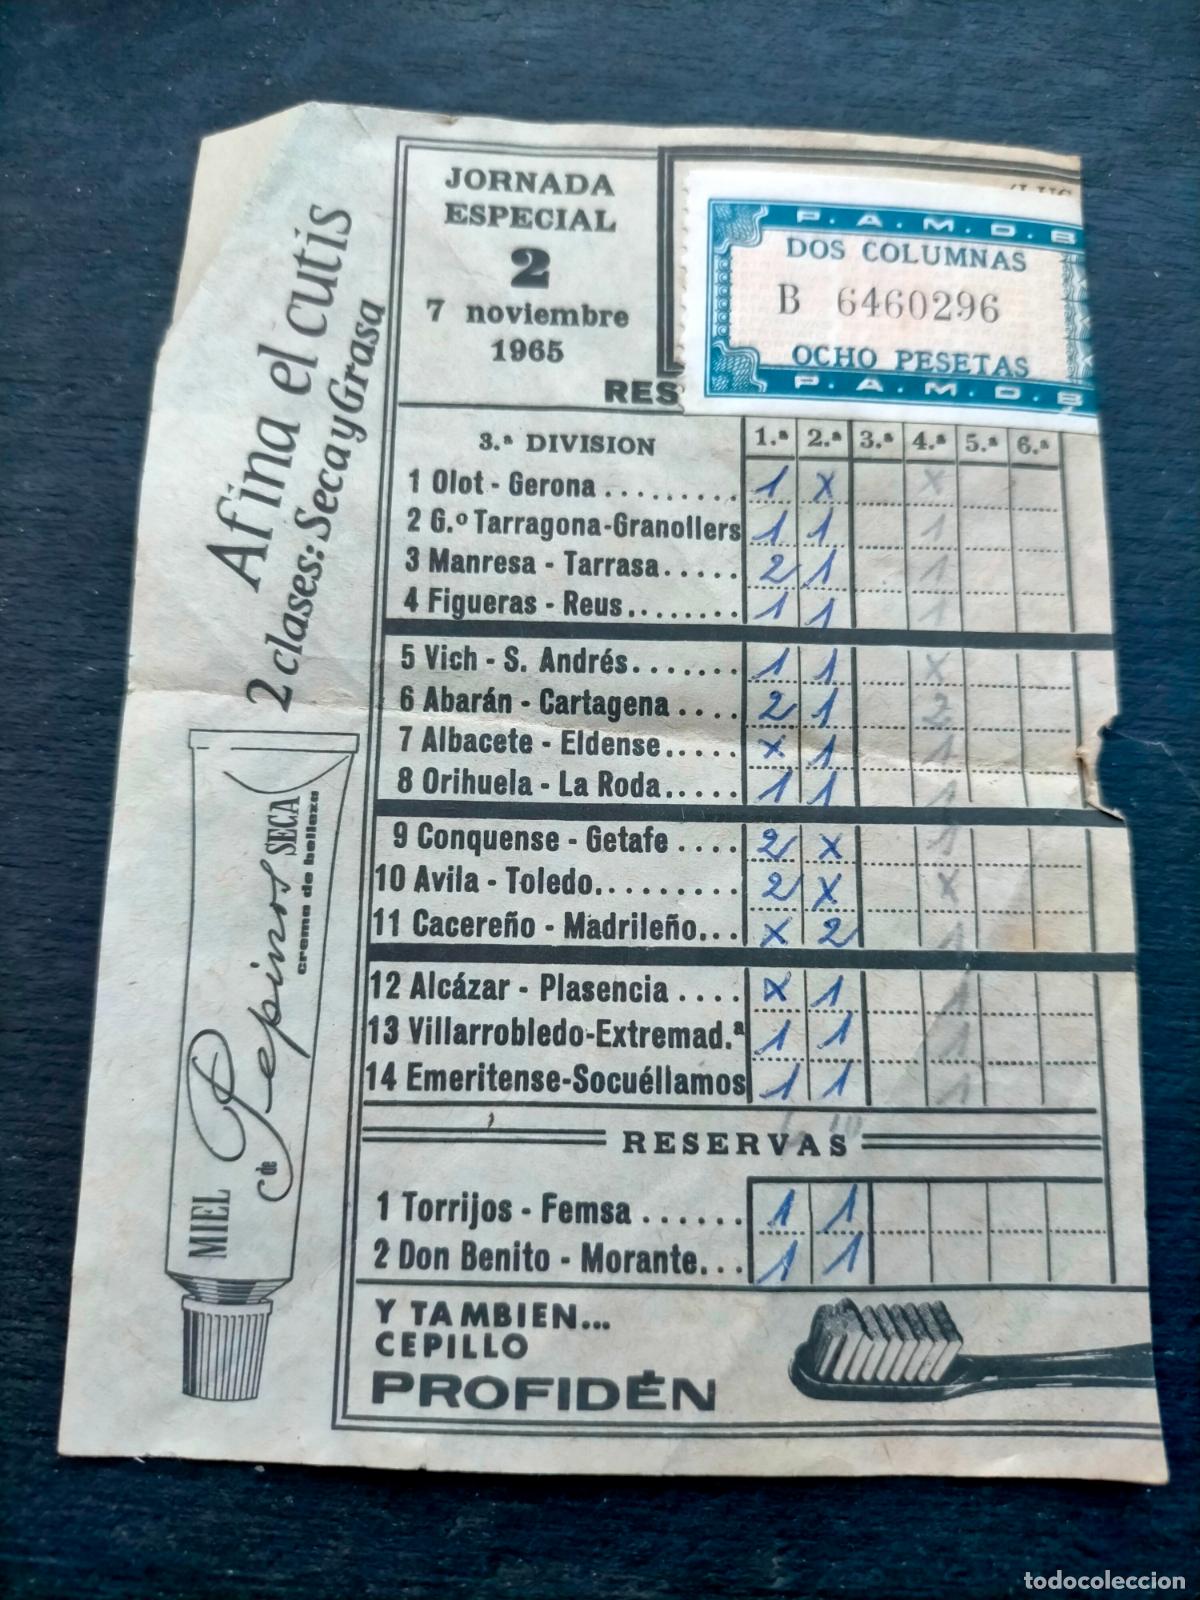 JORNADA
ESPECIAL
2
7 noviembre
1965
RES
P.A.M.D.B
DOS COLUMNAS
B 6460296
OCHO PESETAS
P.A.M.D.B
3.ª DIVISION 1.ª 2.ª 3.ª 4.ª 5.ª 6.ª
1 Olot - Gerona ........ 1 X X
2 G.º Tarragona-Granollers 1 1 1
3 Manresa - Tarrasa..... 2 1 1
4 Figueras - Reus....... 1 1 1
5 Vich - S. Andrés....... 1 1 X
6 Abarán - Cartagena .... 2 1 2
7 Albacete - Eldense..... X 1 1
8 Orihuela - La Roda..... 1 1 1
9 Conquense - Getafe .... 2 X 1
10 Avila - Toledo......... 2 X X
11 Cacereño - Madrileño... X 2 1
12 Alcázar - Plasencia .... X 1 1
13 Villarrobledo-Extremad.ª 1 1 1
14 Emeritense-Socuéllamos 1 1 1
RESERVAS
1 Torrijos - Femsa ...... 1 1
2 Don Benito - Morante... 1 1
Y TAMBIEN...
CEPILLO
PROFIDÉN
Afina el cutis
2 clases: Seca y Grasa
MIEL de Pepinos SECA
crema de belleza
todocoleccion